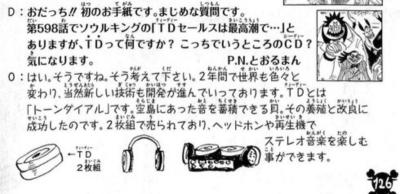 D：おだっち!! 初のお手紙です。まじめな質問です。
第598話でソウルキングの「TDセールスは最高潮で…」と
ありますが、TDって何ですか？ こっちでいうところのCD？
気になります。　P.N.とおるまん
O：はい。そうですね。そう考えて下さい。2年間で世界も色々と
変わり、当然新しい技術も開発が進んでいっております。TDとは
「トーンダイアル」です。空島にあった音を蓄積できる貝。その養殖と改良に
成功したのです。2枚組で売られており、ヘッドホンや再生機で
ステレオ音楽を楽しむ
事ができます。
←TD
2枚組
126